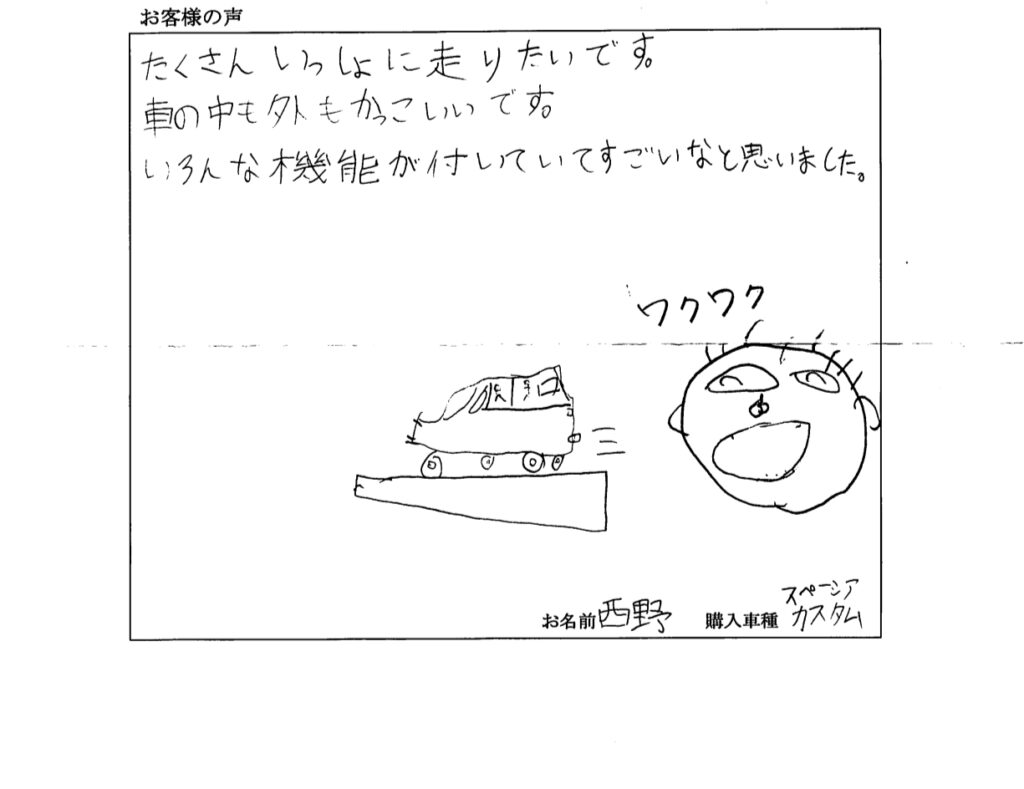 お客様の声
たくさんいっしょに走りたいです。
車の中も外もかっこいいです。
いろんな機能が付いていてすごいなと思いました。
ワクワク
お名前 西野 購入車種 スペーシア
カスタム